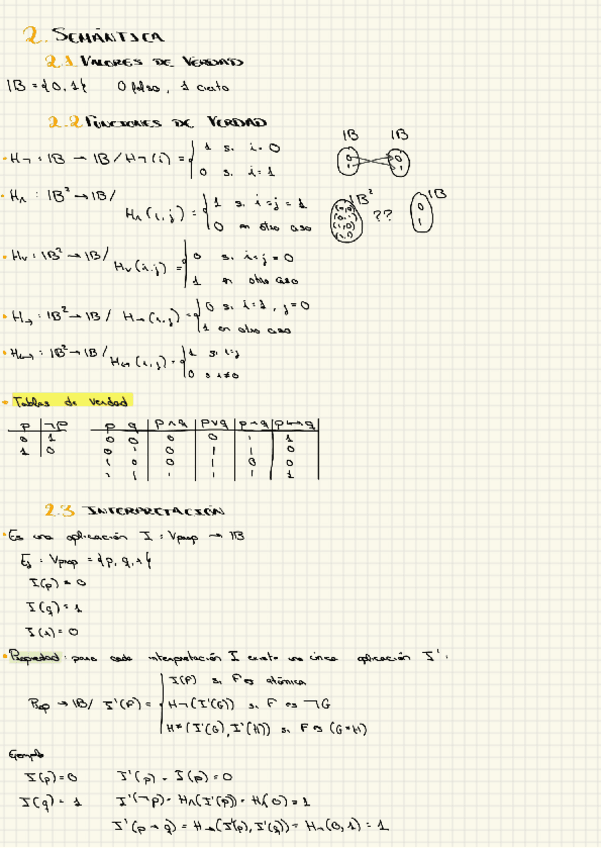 2. SEMÁNTICA
2.1 VALORES DE VERDAD
IB = {0, 1}   0 falso, 1 cierto
2.2 FUNCIONES DE VERDAD
• H¬ : IB → IB / H¬(i) = { 1 si i = 0
0 si i = 1
IB   IB
• H∧ : IB² → IB /
H∧(i, j) = { 1 si i = j = 1
0 en otro caso
IB² ?? IB
• H∨ : IB² → IB /
H∨(i, j) = { 0 si i = j = 0
1 en otro caso
• H→ : IB² → IB / H→(i, j) = { 0 si i = 1, j = 0
1 en otro caso
• H↔ : IB² → IB / H↔(i, j) = { 1 si i = j
0 si i ≠ 0
• Tablas de verdad
p | ¬p   p q | p∧q | p∨q | p→q | p↔q
0 | 1   0 0 | 0 | 0 | 1 | 1
1 | 0   0 1 | 0 | 1 | 1 | 0
1 0 | 0 | 1 | 0 | 0
1 1 | 1 | 1 | 1 | 1
2.3 INTERPRETACIÓN
• Es una aplicación I : Vprop → IB
Ej : Vprop = {p, q, r}
I(p) = 0
I(q) = 1
I(r) = 0
• Propiedad : para cada interpretación I existe una única aplicación I' :
I(F) si F es atómica
Prop → IB / I'(F) = { H¬(I'(G)) si F es ¬G
H*(I'(G), I'(H)) si F es (G*H)
Ejemplo
I(p) = 0   I'(p) = I(p) = 0
I(q) = 1   I'(¬p) = H∧(I'(p)) = H(0) = 1
I'(p → q) = H→(I'(p), I'(q)) = H→(0, 1) = 1